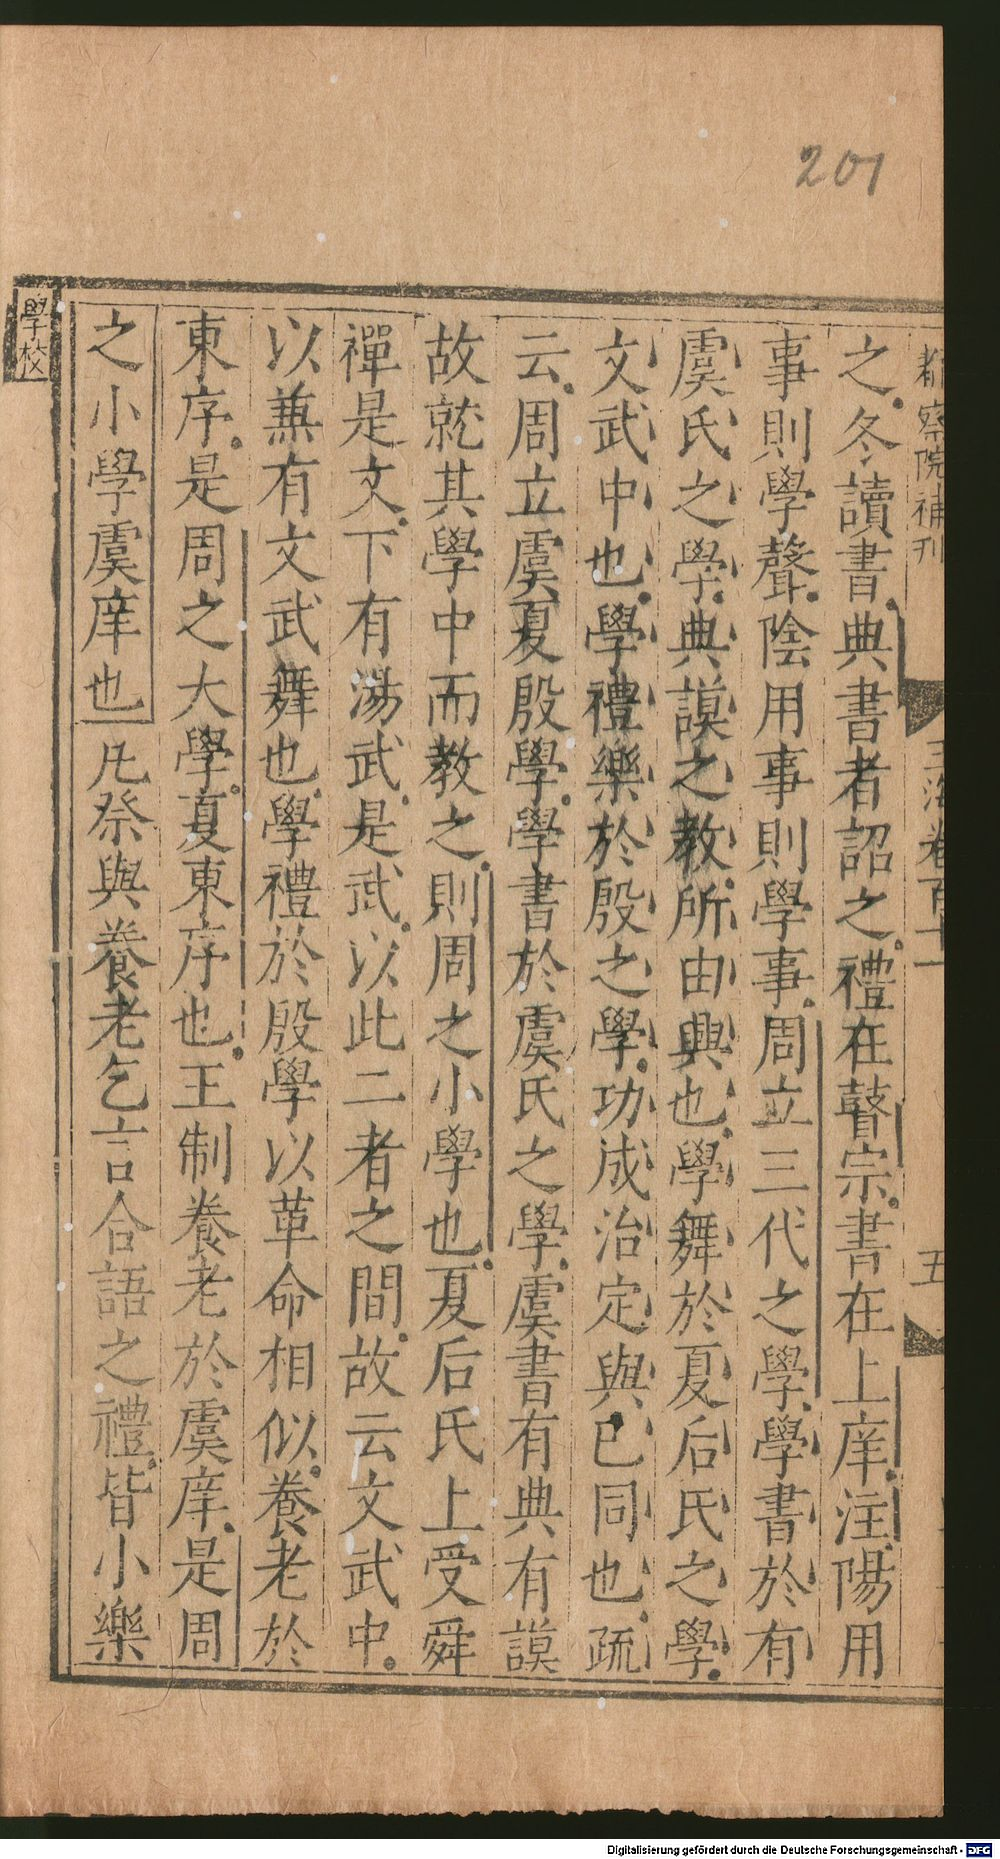 201
都察院補刊
玉海卷百十一
五
之冬讀書典書者詔之禮在瞽宗書在上庠注陽用
事則學聲陰用事則學事周立三代之學學書於有
虞氏之學典謨之教所由興也學舞於夏后氏之學
文武中也學禮樂於殷之學功成治定與已同也疏
云周立虞夏殷學學書於虞氏之學虞書有典有謨
故就其學中而教之則周之小學也夏后氏上受舜
禪是文下有湯武是武以此二者之間故云文武中
以兼有文武舞也學禮於殷學以革命相似養老於
東序是周之大學夏東序也王制養老於虞庠是周
之小學虞庠也凡祭與養老乞言合語之禮皆小樂
學校
Digitalisierung gefördert durch die Deutsche Forschungsgemeinschaft - DFG